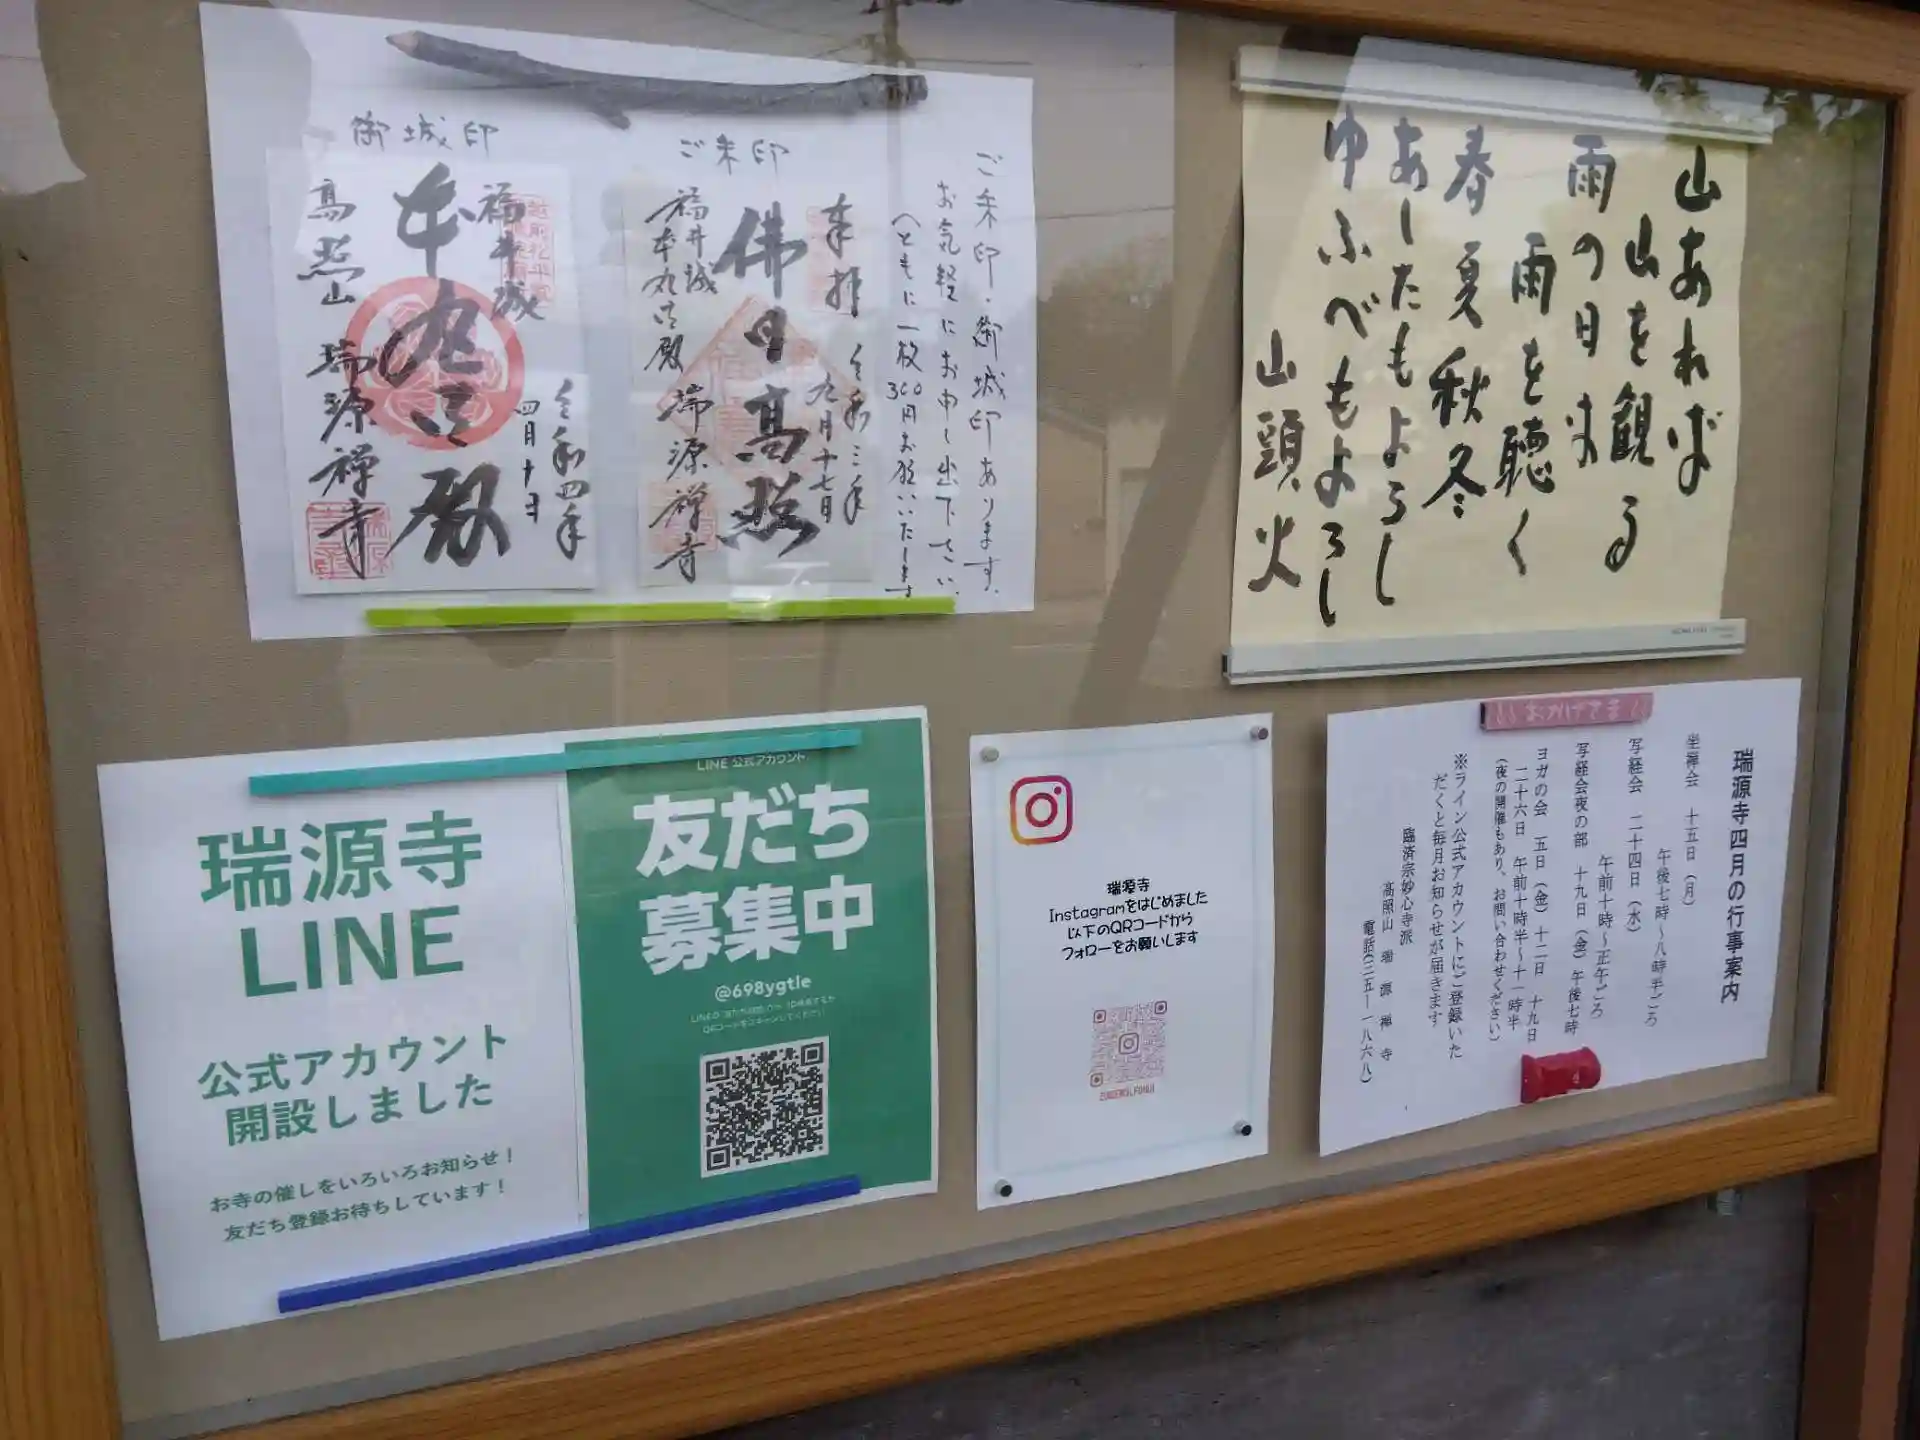 御城印
福井城
本丸御殿
令和四年
四月十日
高照山 瑞源禅寺
ご朱印
奉拝
令和三年
九月十七日
佛日高照
福井城
本丸御殿
瑞源禅寺
ご朱印・御城印あります。
お気軽にお申し出下さい。
(ともに一枚300円お願いいたします
山あれば
山を観る
雨の日は
雨を聴く
春夏秋冬
あしたもよろし
ゆふべもよろし
山頭火
瑞源寺
LINE
公式アカウント
開設しました
お寺の催しをいろいろお知らせ!
友だち登録お待ちしています!
LINE 公式アカウント
友だち
募集中
@698ygtle
瑞源寺
Instagramをはじめました
以下のQRコードから
フォローをお願いします
おかげさま
瑞源寺四月の行事案内
坐禅会 十五日(月)
午後七時~八時半ごろ
写経会 二十四日(水)
午前十時~正午ごろ
写経会夜の部 十九日(金)午後七時
ヨガの会 五日(金)十二日 十九日
二十六日 午前十時半~十一時半
(夜の開催もあり、お問い合わせください)
※ライン公式アカウントにご登録いた
だくと毎月お知らせが届きます
臨済宗妙心寺派
高照山 瑞源禅寺
電話(三五ー一八六八)